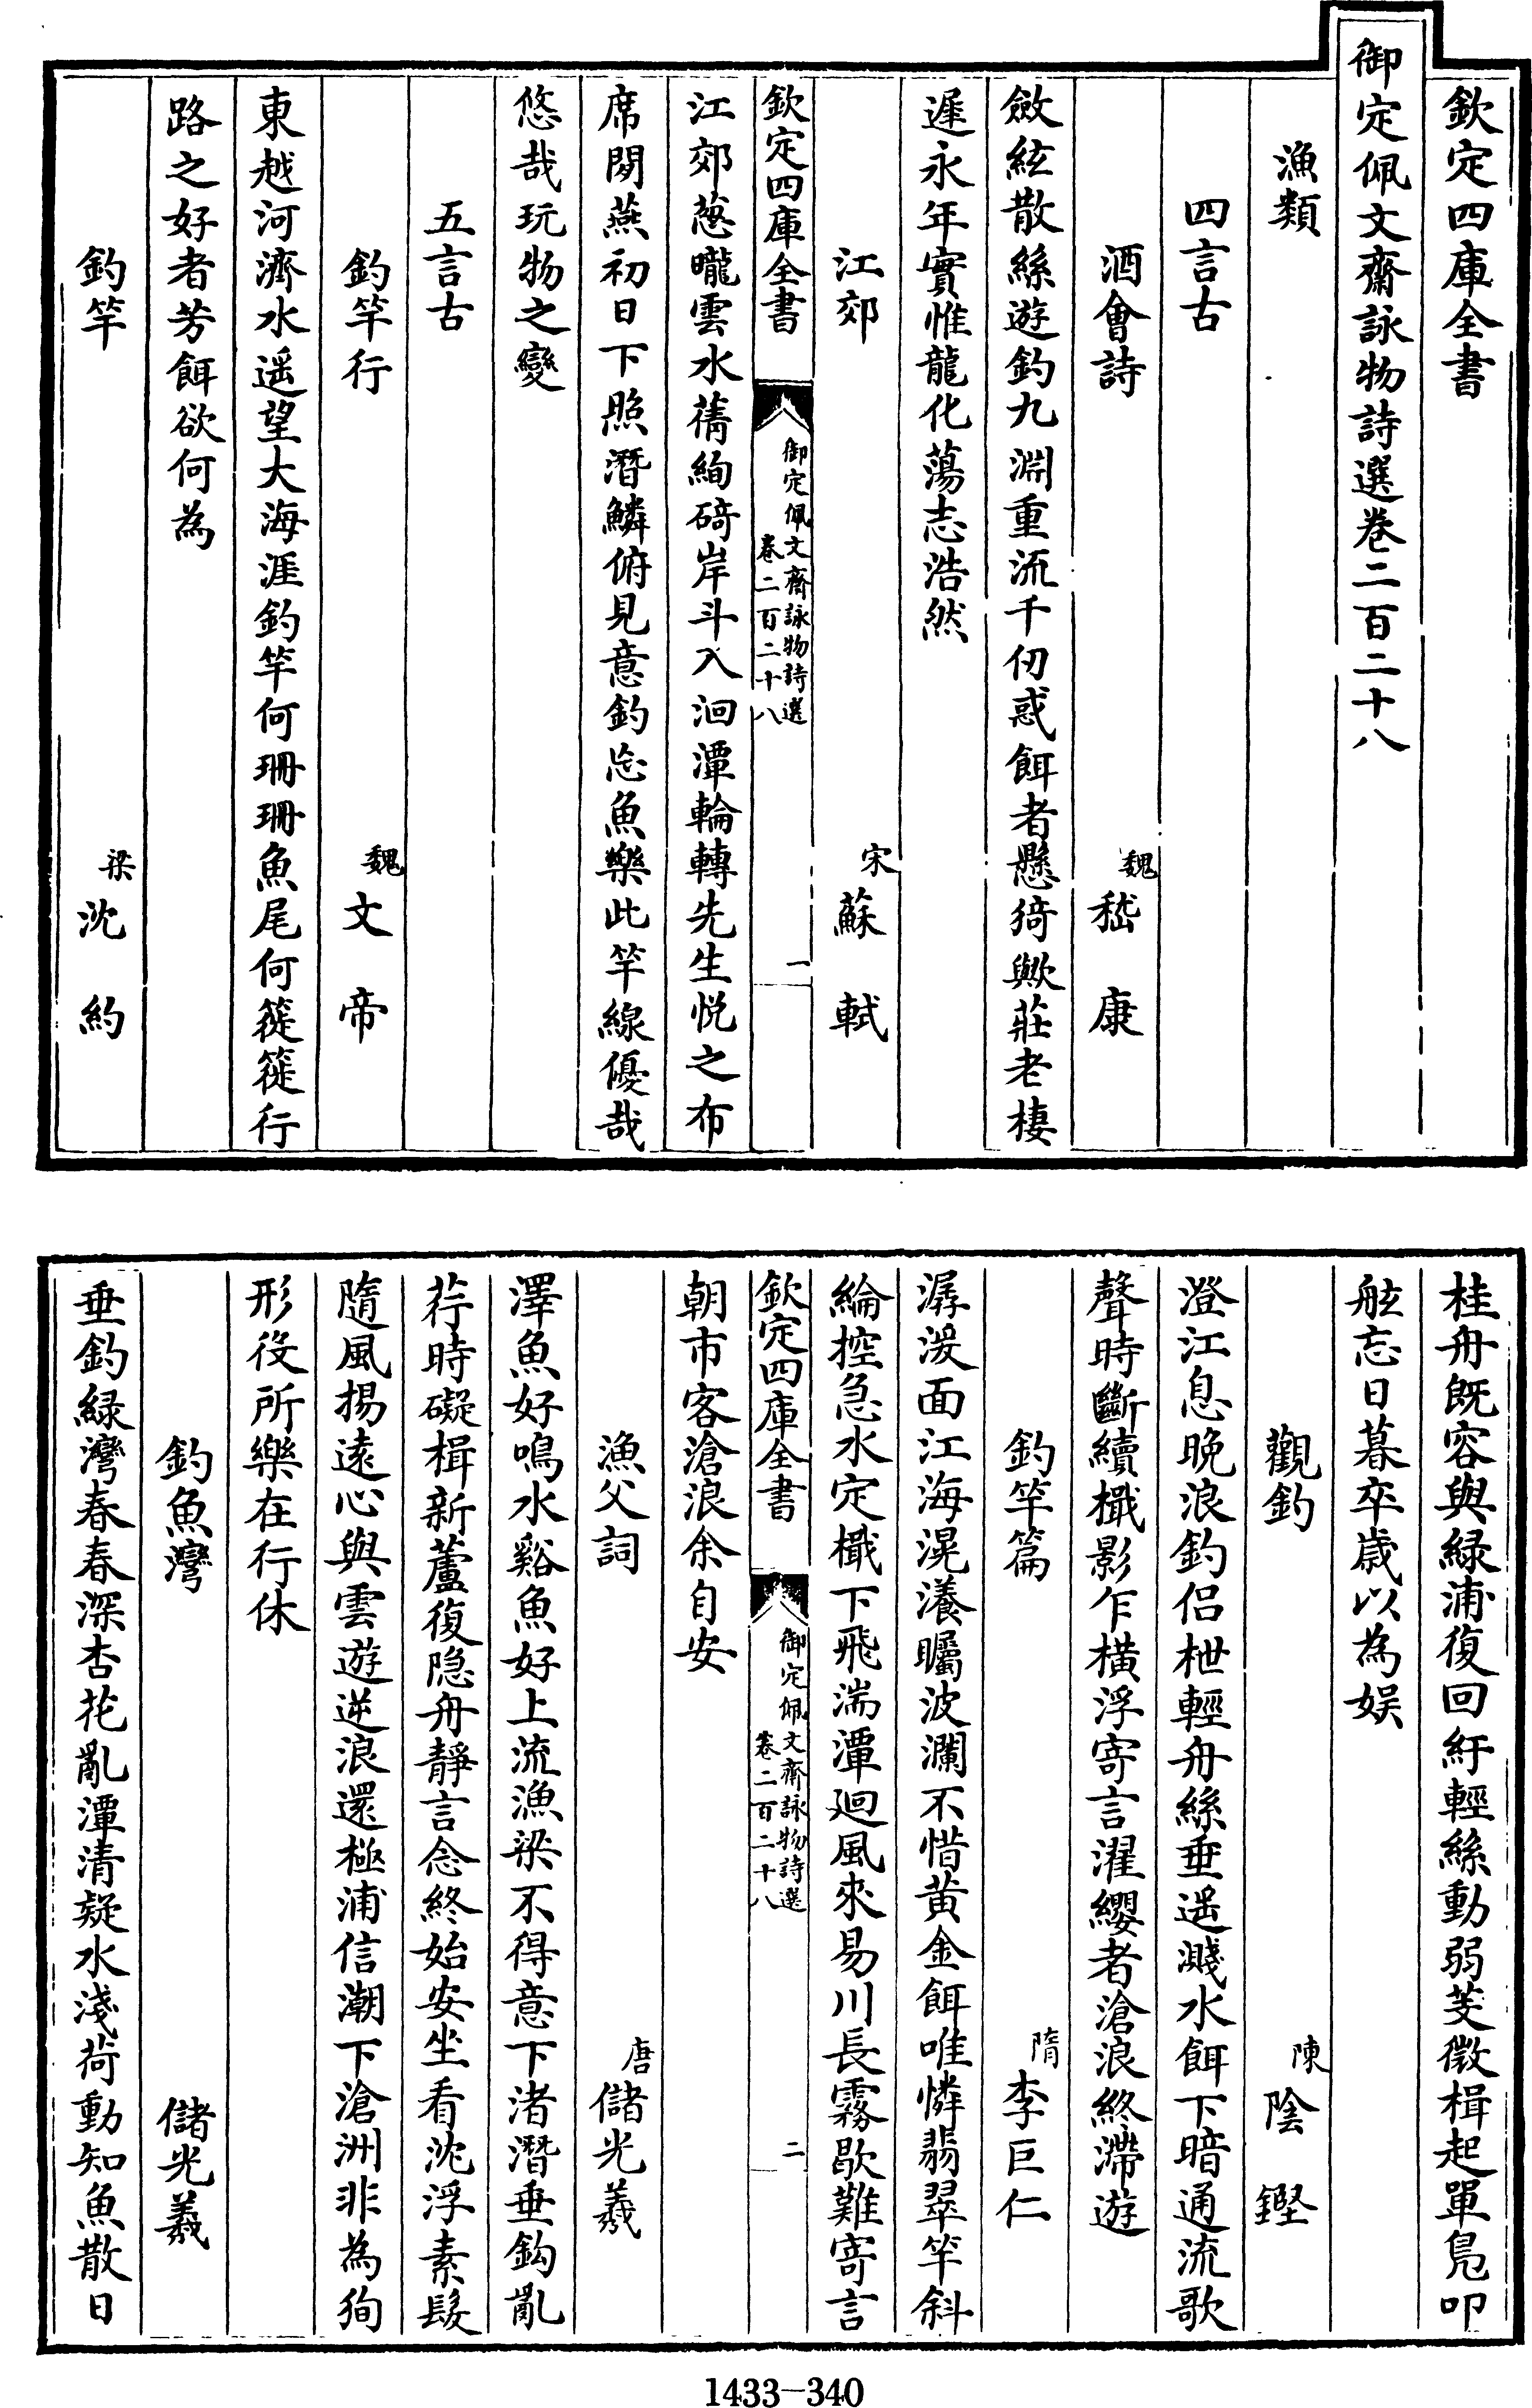 欽定四庫全書
御定佩文齋詠物詩選卷二百二十八
漁類
四言古
酒會詩　魏嵇康
斂絃散絲遊釣九淵重流千仞惑餌者懸猗歟莊老棲
遲永年實惟龍化蕩志浩然
江郊　宋蘇軾
欽定四庫全書　御定佩文齋詠物詩選卷二百二十八　一
江郊葱曨雲水蒨絢碕岸斗入洄潭輪轉先生悦之布
席閒燕初日下照潛鱗俯見意釣忘魚樂此竿線優哉
悠哉玩物之變
五言古
釣竿行　魏文帝
東越河濟水遥望大海涯釣竿何珊珊魚尾何簁簁行
路之好者芳餌欲何為
釣竿　梁沈約
桂舟既容與緑浦復回紆輕絲動弱芰微楫起單鳬叩
舷忘日暮卒歳以為娱
觀釣　陳陰鏗
澄江息晚浪釣侣枻輕舟絲垂遥濺水餌下暗通流歌
聲時斷續檝影乍横浮寄言濯纓者滄浪終滯遊
釣竿篇　隋李巨仁
潺湲面江海滉瀁矚波瀾不惜黄金餌唯憐翡翠竿斜
綸控急水定檝下飛湍潭廻風來易川長霧歇難寄言
欽定四庫全書　御定佩文齋詠物詩選卷二百二十八　二
朝市客滄浪余自安
漁父詞　唐儲光羲
澤魚好鳴水谿魚好上流漁梁不得意下渚潛垂鈎亂
荇時礙楫新蘆復隱舟靜言念終始安坐看沈浮素髮
隨風揚遠心與雲遊逆浪還極浦信潮下滄洲非為徇
形役所樂在行休
釣魚灣　儲光羲
垂釣緑灣春春深杏花亂潭清疑水淺荷動知魚散日
1433-340